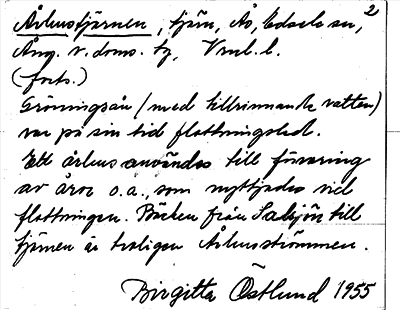 2
Århustjärnen, tjärn, Ås, Edsele sn,
Ång. v. doms. tg, Vnl. l.
(forts.)
Gröningsån (med tillrinnande vatten)
var på sin tid flottningsled.
Ett århus användes till förvaring
av åror o.a., som nyttjades vid
flottningen. Bäcken från Salsjön till
tjärnen är troligen Århusströmmen.
Birgitta Östlund 1955